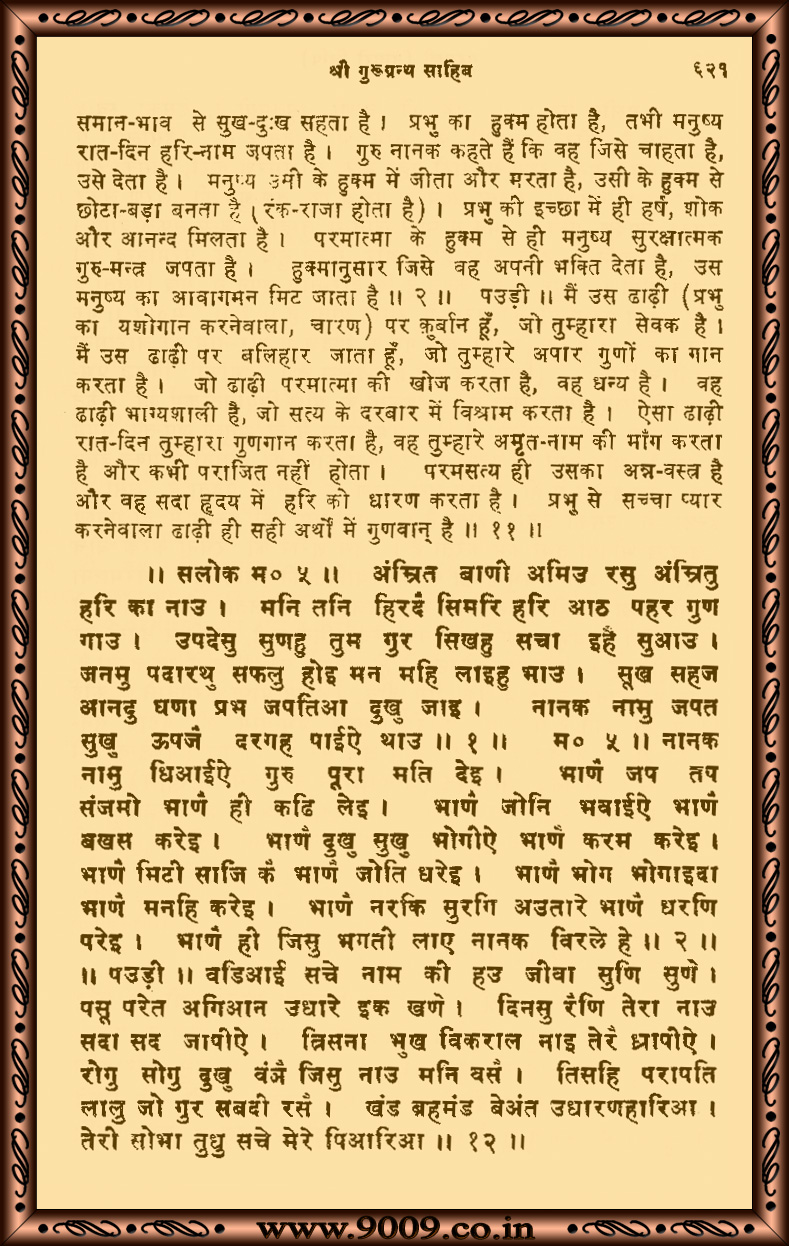 श्री गुरूग्रन्थ साहिब ६२१
समान-भाव से सुख-दुःख सहता है । प्रभु का हुक्म होता है, तभी मनुष्य
रात-दिन हरि-नाम जपता है । गुरु नानक कहते हैं कि वह जिसे चाहता है,
उसे देता है । मनुष्य उसी के हुक्म में जीता और मरता है, उसी के हुक्म से
छोटा-बड़ा बनता है (रंक-राजा होता है) । प्रभु की इच्छा में ही हर्ष, शोक
और आनन्द मिलता है । परमात्मा के हुक्म से ही मनुष्य सुरक्षात्मक
गुरु-मन्त्र जपता है । हुक्मानुसार जिसे वह अपनी भक्ति देता है, उस
मनुष्य का आवागमन मिट जाता है ॥ २ ॥ पउड़ी ॥ मैं उस ढाढ़ी (प्रभु
का यशोगान करनेवाला, चारण) पर क़ुर्बान हूँ, जो तुम्हारा सेवक है ।
मैं उस ढाढ़ी पर बलिहार जाता हूँ, जो तुम्हारे अपार गुणों का गान
करता है । जो ढाढ़ी परमात्मा की खोज करता है, वह धन्य है । वह
ढाढ़ी भाग्यशाली है, जो सत्य के दरबार में विश्राम करता है । ऐसा ढाढ़ी
रात-दिन तुम्हारा गुणगान करता है, वह तुम्हारे अमृत-नाम की माँग करता
है और कभी पराजित नहीं होता । परमसत्य ही उसका अन्न-वस्त्र है
और वह सदा हृदय में हरि को धारण करता है । प्रभु से सच्चा प्यार
करनेवाला ढाढ़ी ही सही अर्थों में गुणवान् है ॥ ११ ॥
॥ सलोक म० ५ ॥ अंम्रित बाणी अमिउ रसु अंम्रितु
हरि का नाउ । मनि तनि हिरदै सिमरि हरि आठ पहर गुण
गाउ । उपदेसु सुणहु तुम गुर सिखहु सचा इहै सुआउ ।
जनमु पदारथु सफलु होइ मन महि लाइहु भाउ । सूख सहज
आनदु घणा प्रभ जपतिआ दुखु जाइ । नानक नामु जपत
सुखु ऊपजै दरगह पाईऐ थाउ ॥ १ ॥ म० ५ ॥ नानक
नामु धिआईऐ गुरु पूरा मति देइ । भाणै जप तप
संजमो भाणै ही कढि लेइ । भाणै जोनि भवाईऐ भाणै
बखस करेइ । भाणै दुखु सुखु भोगीऐ भाणै करम करेइ ।
भाणै मिटी साजि कै भाणै जोति धरेइ । भाणै भोग भोगाइदा
भाणै मनहि करेइ । भाणै नरकि सुरगि अउतारे भाणै धरणि
परेइ । भाणै ही जिसु भगती लाए नानक विरले हे ॥ २ ॥
॥ पउड़ी ॥ वडिआई सचे नाम की हउ जीवा सुणि सुणे ।
पसू परेत अगिआन उधारे इक खणे । दिनसु रैणि तेरा नाउ
सदा सद जापीऐ । त्रिसना भुख विकराल नाइ तेरै ध्रापीऐ ।
रोगु सोगु दुखु वंञै जिसु नाउ मनि वसै । तिसहि परापति
लालु जो गुर सबदी रसै । खंड ब्रहमंड बेअंत उधारणहारिआ ।
तेरी सोभा तुधु सचे मेरे पिआरिआ ॥ १२ ॥
www.9009.co.in